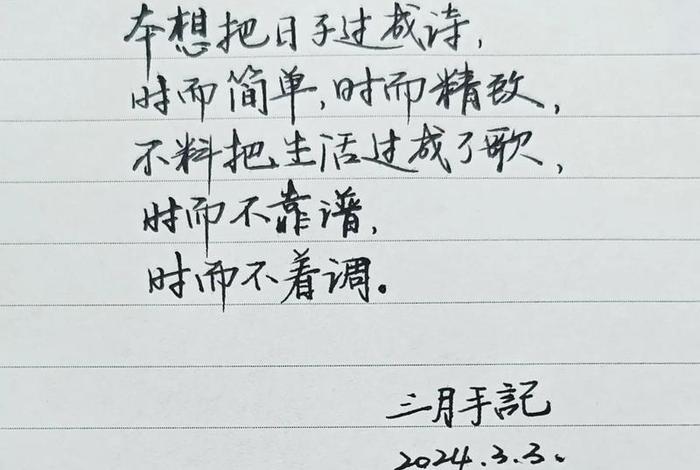 本想把日子过成诗,
时而简单,时而精致,
不料把生活过成了歌,
时而不靠谱,
时而不着调。
三月手記
2024.3.3.